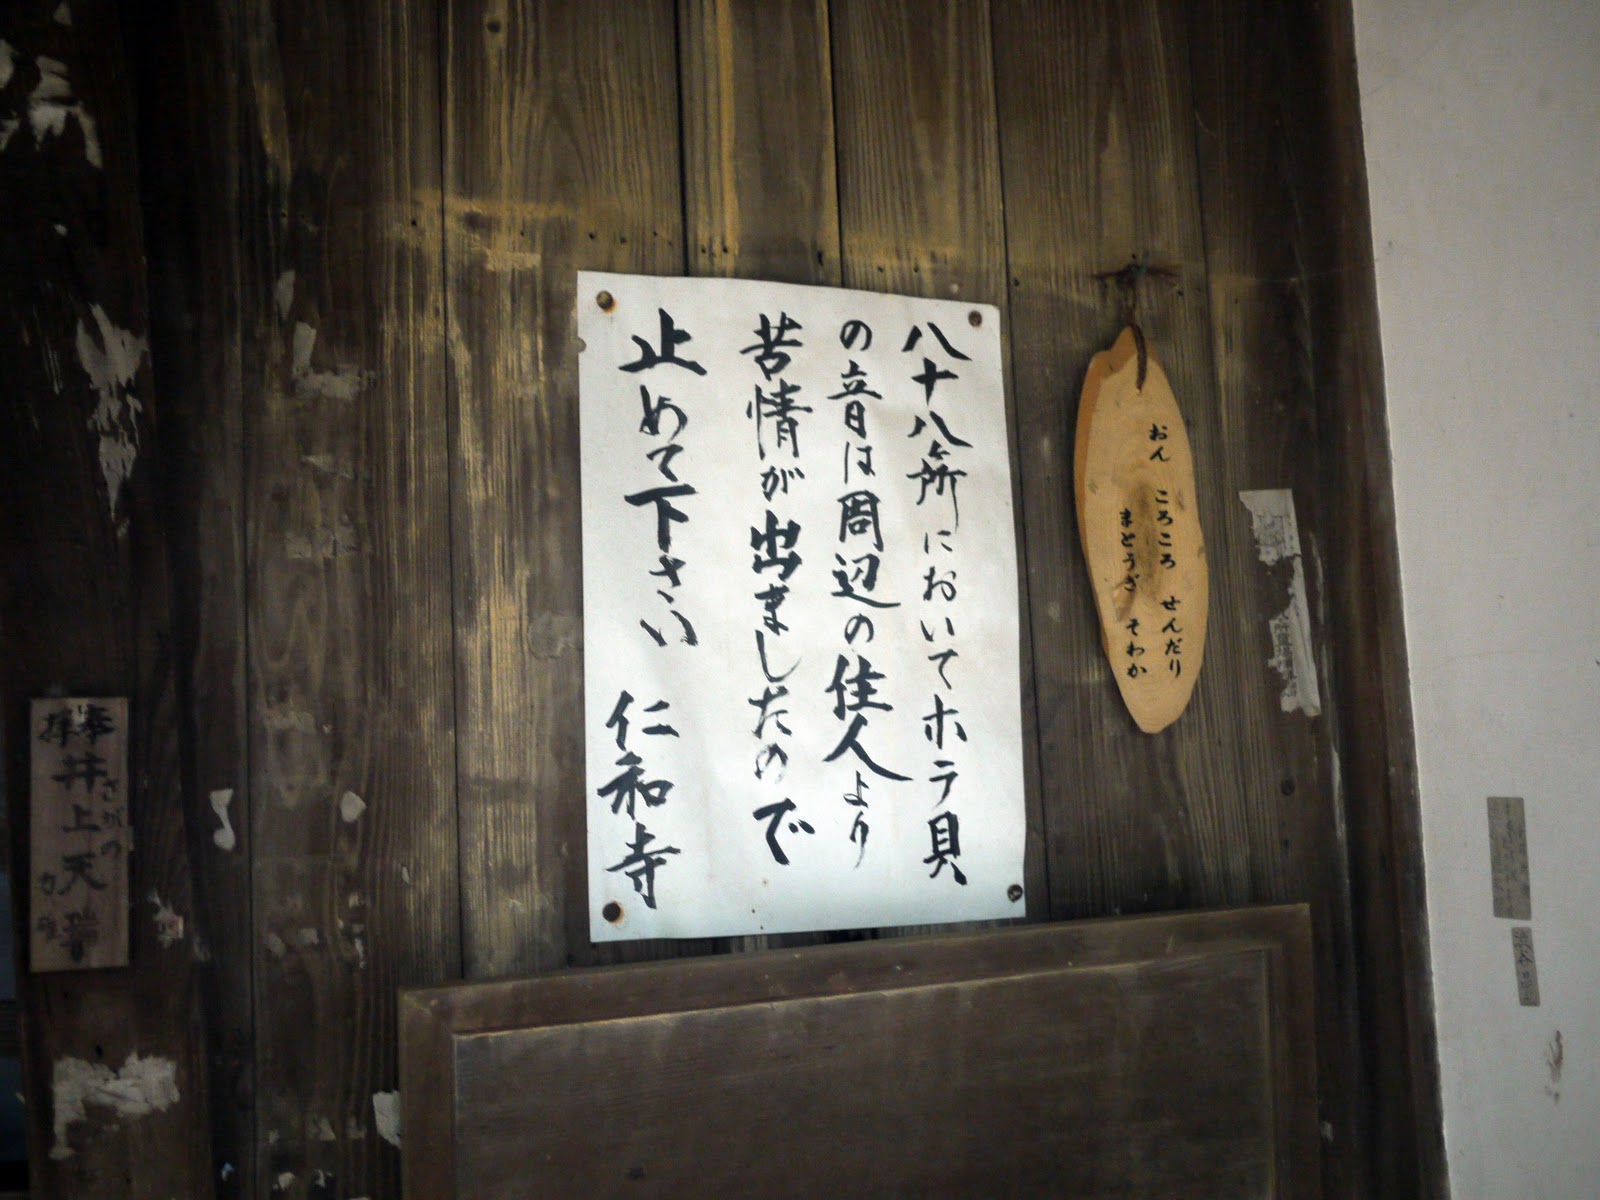 おん ころころ せんだり
まとうぎ そわか
八十八ヶ所においてホラ貝
の音は周辺の住人より
苦情が出ましたので
止めて下さい 仁和寺
奉
井上天
さがの